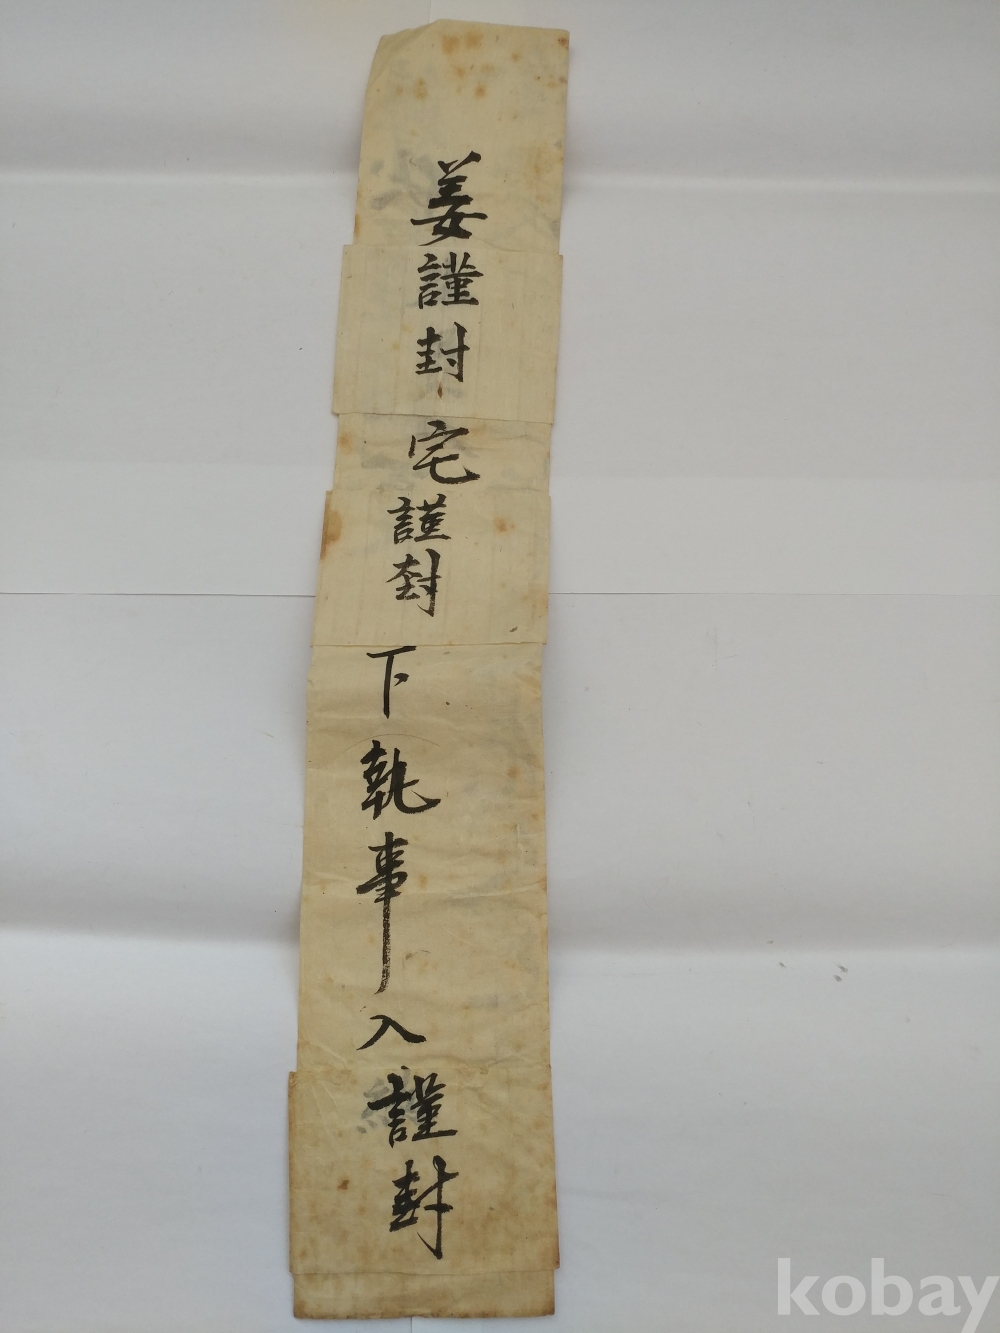 姜謹封宅謹封下執事入謹封
kobay